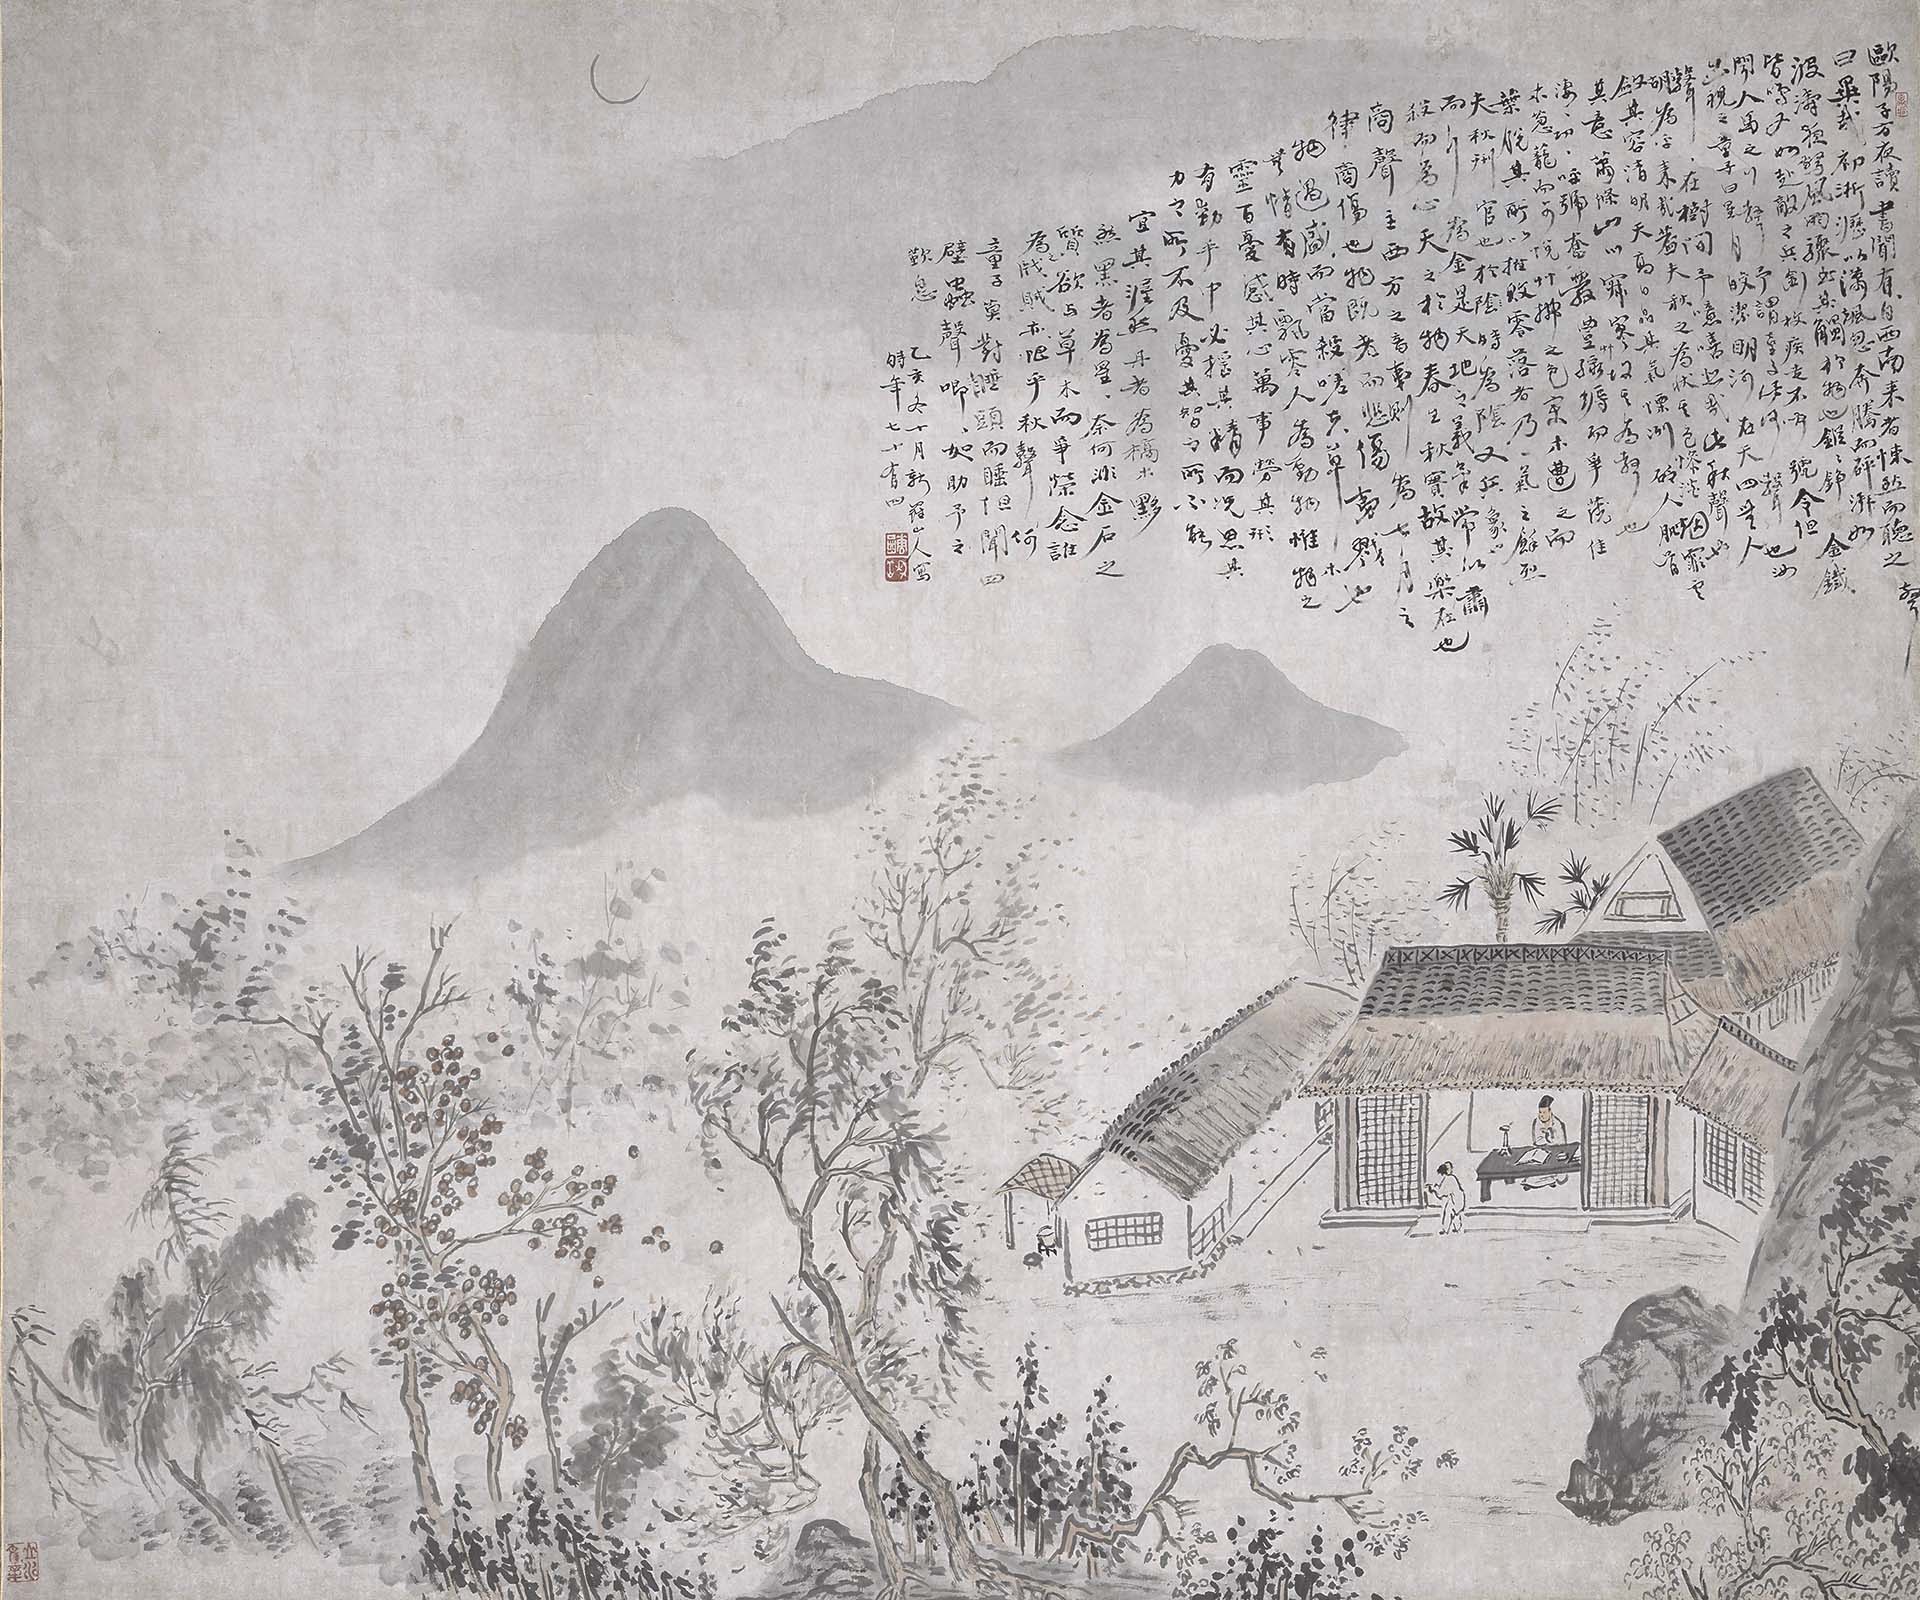 歐陽子方夜讀書聞有自西南來者悚然而聽之
曰異哉初淅瀝以瀟颯忽奔騰而砰湃如
波濤夜驚風雨驟至其觸於物也鏦〻錚〻金鐵
皆鳴又如赴敵之兵銜枚疾走不聞號令但
聞人馬之行聲予謂童子此何聲也汝
出視之童子曰星月皎潔明河在天四無人
聲〻在樹間予曰噫嘻悲哉此秋聲也
胡為乎來哉蓋夫秋之為狀其色慘淡烟霏雲
斂其容清明天高日晶其氣慄冽砭人肌骨
其意蕭條山川寂寥故其為聲也
淒〻切〻呼號奮發豐草綠縟而爭茂佳
木葱蘢而可悅草拂之色變木遭之而
葉脫其所以摧敗零落者乃一氣之餘烈
夫秋刑官也於時為陰又兵象也
而行為金是天地之義氣常以肅
殺而為心天之於物春生秋實故其樂在也
商聲主西方之音夷則為七月之
律商傷也物既老而悲傷夷戮也
物過盛而當殺嗟夫草木
無情有時飄零人為動物惟物之
靈百憂感其心萬事勞其形
有動乎中必搖其精而況思其
力之所不及憂其智之所不能
宜其渥然丹者為槁木黟
然黑者為星〻奈何非金石之
質欲與草木而爭榮念誰
為之戕賊亦何恨乎秋聲
童子莫對垂頭而睡但聞四
壁蟲聲唧〻如助予之
歎息
乙亥冬十月新羅山人寫
時年七十有四